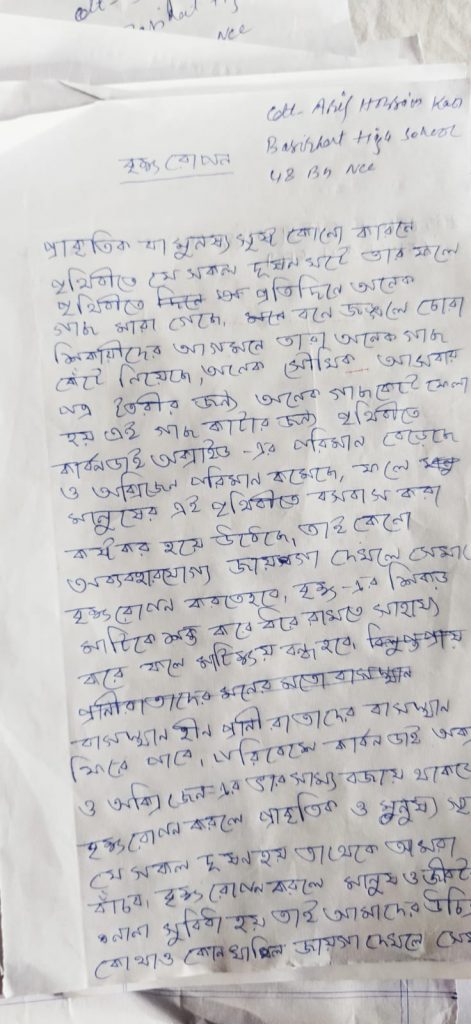 Cdt. Arif Hossain
Basirhat High School
48 Bn Ncc
Ncc
বৃক্ষ রোপন
প্রাকৃতিক বা মুনষ্য সৃষ্ট কোনো কারনে
পৃথিবীতে যে সকল দূষন ঘটে তার ফলে
পৃথিবীতে প্রতিদিনে অনেক
গাছ মারা গেছে, বনে জঙ্গলে চোরা
শিকারীদের আগমনে তারা অনেক গাছ
কেটে নিয়েছে, অনেক সৌখিক আসবাব
পত্র তৈরীর জন্য অনেক গাছ কেটে ফেলা
হয় এই গাছ কাটার জন্য পৃথিবীতে
কার্বনডাই অক্সাইড -এর পরিমান বেড়েছে
ও অক্সিজেন পরিমান কমেছে, ফলে
মানুষের এই পৃথিবীতে বসবাস করা
হয়ে উঠেছে, তাই কোনো
অব্যবহারযোগ্য জায়গা দেখলে
বৃক্ষরোপন করতে হবে, বৃক্ষ-এর শিকড়
মাটিকে শক্ত করে ধরে রাখতে সাহায্য
করে ফলে মাটিক্ষয় বন্ধ হবে,
প্রানীরা তাদের মনের মতো বাসস্থান
বাসস্থান হীন প্রানী রা তাদের বাসস্থান
ফিরে পাবে, পরিবেশে কার্বন ডাই
ও অক্সিজেন-এর ভারসাম্য বজায় থাকবে
বৃক্ষরোপন করলে প্রাকৃতিক ও মুনুষ্য
যে সকল দূষন হয় তা থেকে আমরা
বাঁচব, বৃক্ষ রোপন করলে মানুষ ও
নানা সুবিধা হয় তাই আমাদের
কোথাও কোন জায়গা দেখলে